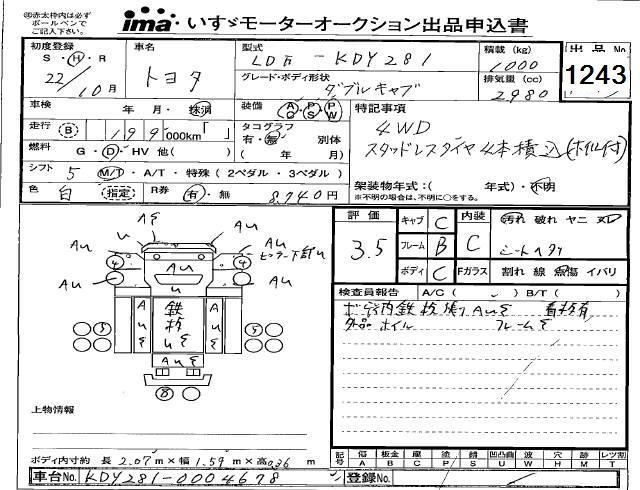 ㊟赤太枠内は必ず
ボールペンで
ご記入下さい。
ima いすゞモーターオークション出品申込書
初度登録
S・H・R
22/10月
車名
トヨタ
型式
LDF-KDY281
グレード・ボディ形状
ダブルキャブ
積載 (kg)
1000
排気量 (cc)
2980
出品No
1243
車検 年 月・抹消
装備 AC PS PW
走行 B 199,000km「 」
タコグラフ
有・無 別体
( 年 月)
燃料 G・D・HV 他( )
シフト 5 M/T・A/T・特殊(2ペダル・3ペダル)
色 白 (指定)
R券 有・無 8,940円
特記事項
4WD
スタッドレスタイヤ4本積込(ホイル付)
架装物年式:( 年式)・不明
※不明の場合は、不明に○をする。
評価
3.5
キャブ C
フレーム B
ボディ C
内装
C
Fガラス
汚れ 破れ ヤニ 臭
シートヘタリ
割れ 線 点傷 イバリ
検査員報告 A/C( )B/T( )
ボデー内鉄板張り AUS 看板有
外品ホイル フレームS
AS
AU
U
AU
AU
AU
AU
ピラー下部U
4
4
AU
AU
AUS
鉄板US
AUS
AUS
5
5
8
上物情報
ボディ内寸 約 長 2.07m×幅 1.59m×高 0.36m
記号
傷 A
板金 B
腐 C
塗 P
錆 S
凹凸曲 U
波 W
穴 H
跡 M
レツ割 T
車台No. KDY281-0004678
登録No.